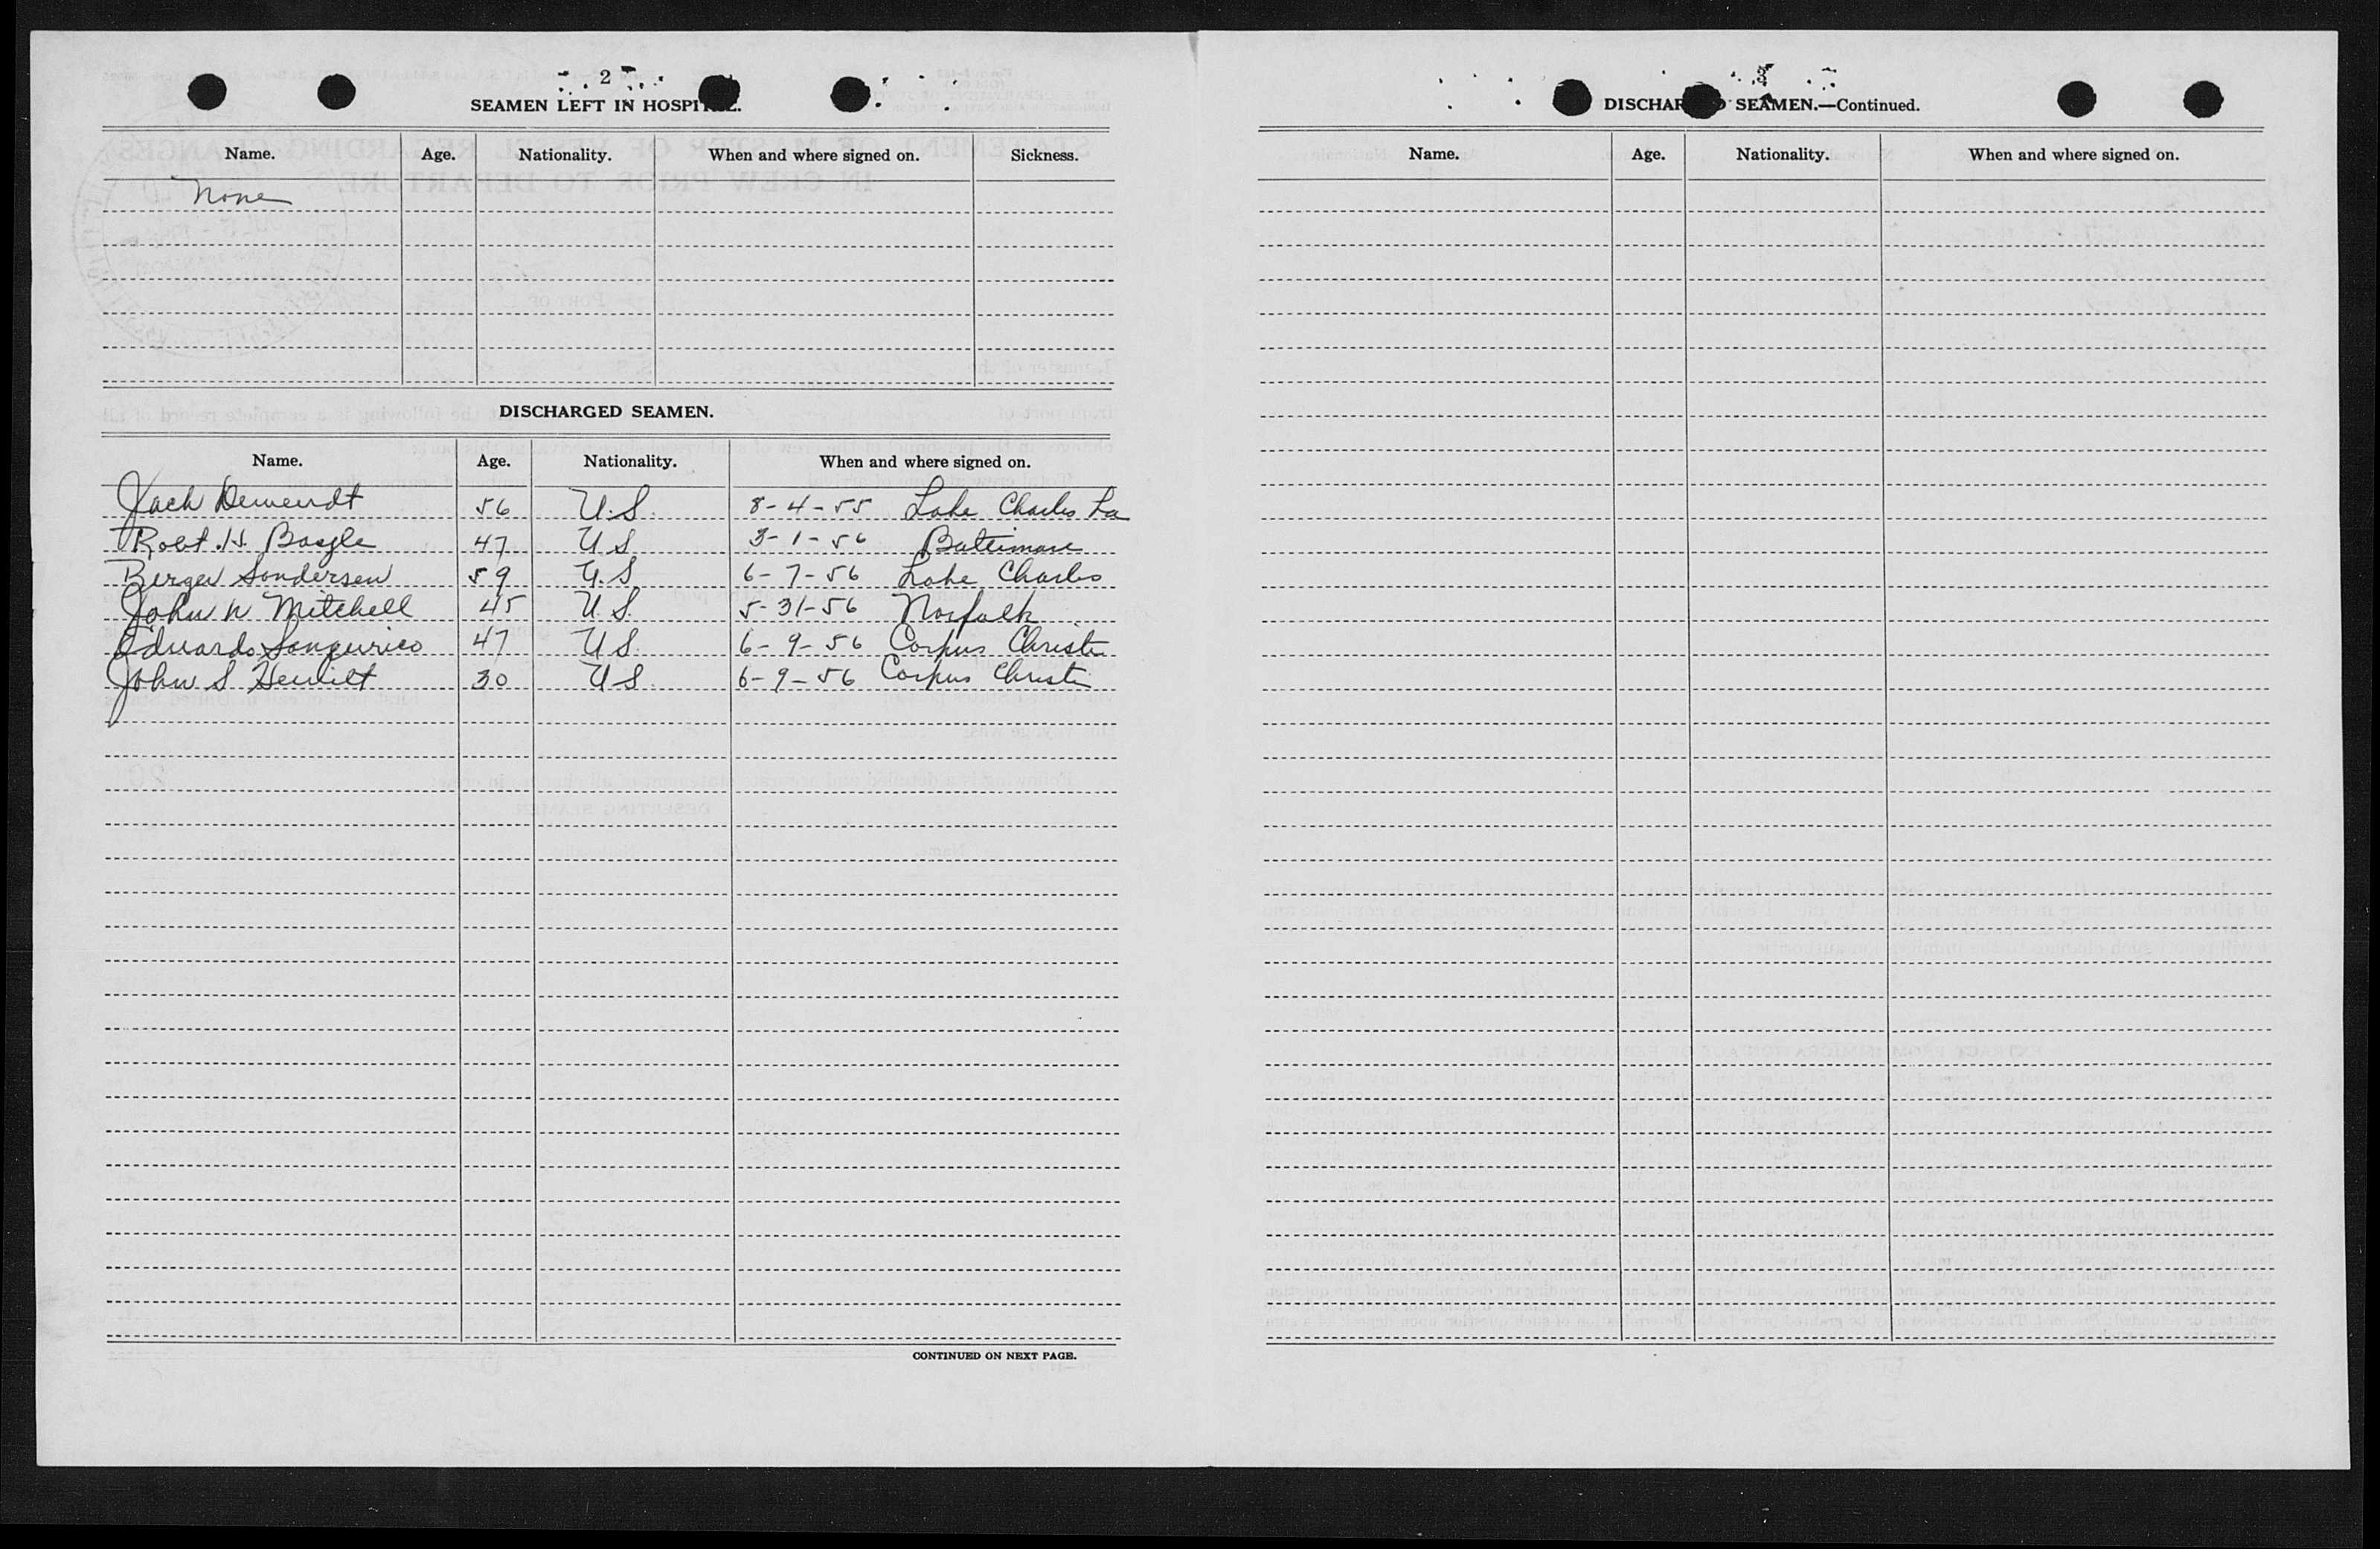 2
SEAMEN LEFT IN HOSPITAL.
Name. Age. Nationality. When and where signed on. Sickness.
None
DISCHARGED SEAMEN.
Name. Age. Nationality. When and where signed on.
Jack 56 U.S. 8-4-55 Lake Charles La
Robt. H. 47 U S 3-1-56 Baltimore
Berger Sondersen 59 U.S 6-7-56 Lake Charles
John W Mitchell 45 U.S. 5-31-56 Norfolk
Eduardo 47 U S. 6-9-56 Corpus Christi
John S 30 U S. 6-9-56 Corpus Christi
CONTINUED ON NEXT PAGE.
3
DISCHARGED SEAMEN.—Continued.
Name. Age. Nationality. When and where signed on.